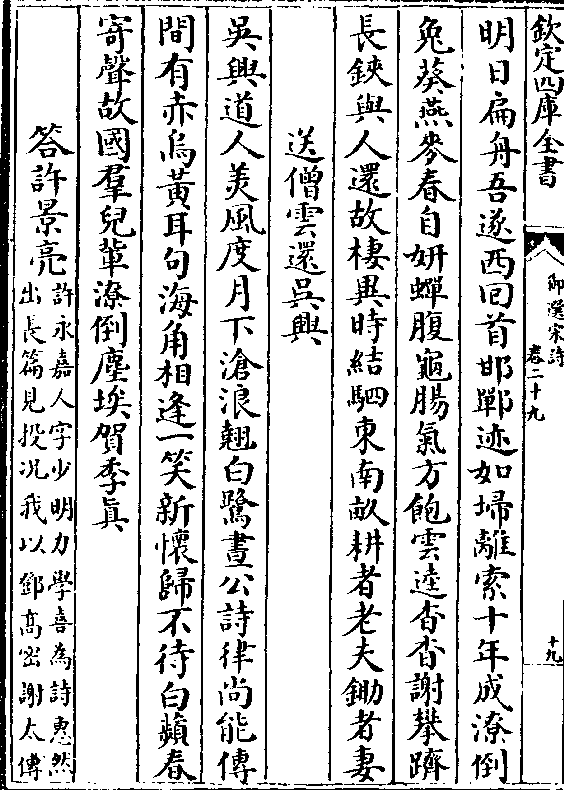 欽定四庫全書
御選宋詩
卷二十九
十九
明日扁舟吾遂西回首邯鄲迹如埽離索十年成潦倒
兔葵燕麥春自妍蟬腹龜腸氣方飽雲逵杳杳謝攀躋
長鋏與人還故棲異時結駟東南畝耕者老夫鋤者妻
送僧雲還吳興
吳興道人美風度月下滄浪翹白鷺晝公詩律尚能傳
間有赤烏黃耳句海角相逢一笑新懷歸不待白蘋春
寄聲故國羣兒輩潦倒塵埃賀季眞
答許景亮
許永嘉人字少明力學喜為詩惠然
出長篇見投况我以鄧高密謝太傅